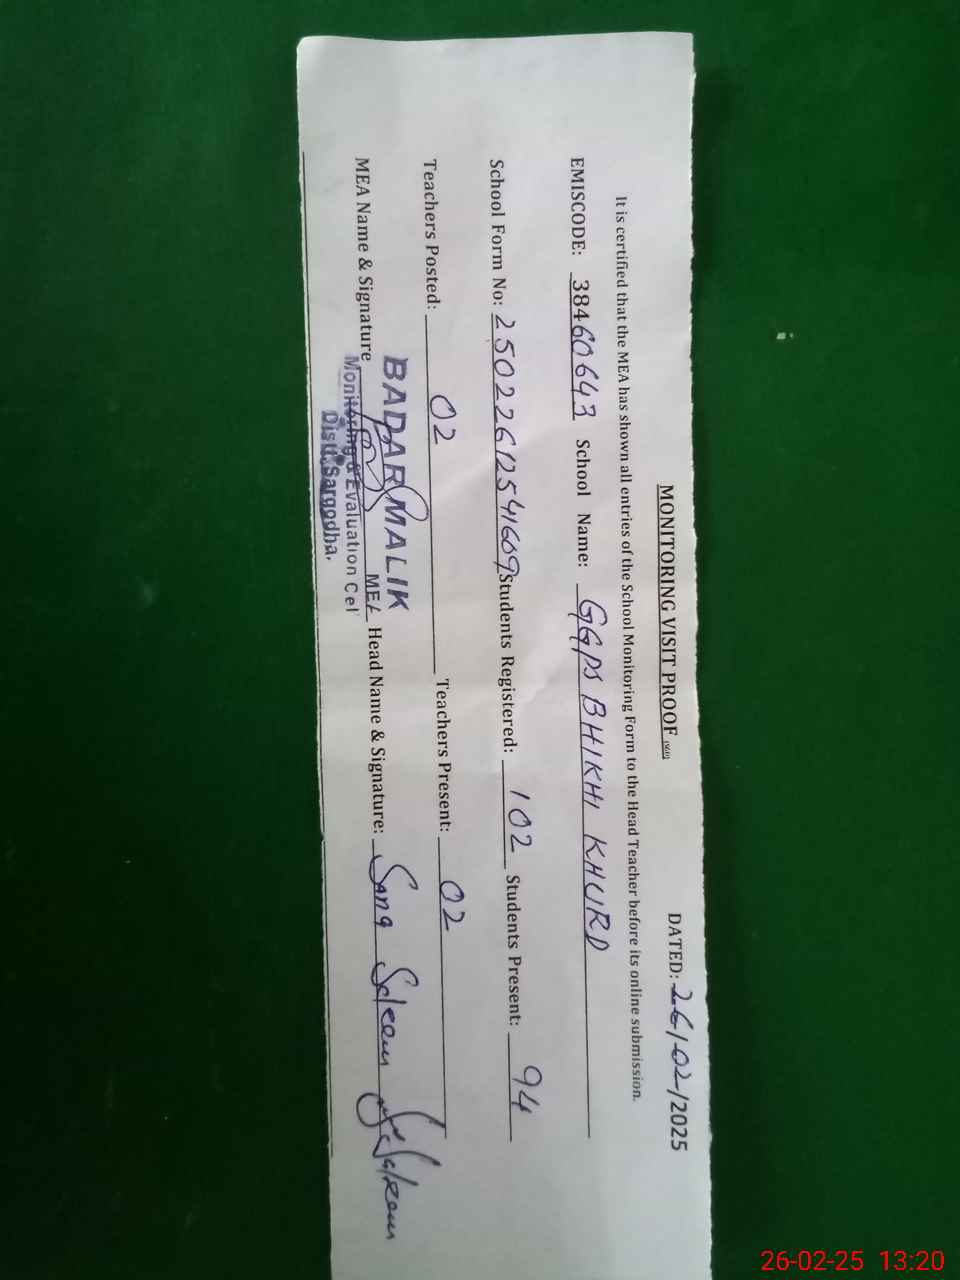 MONITORING VISIT PROOF
DATED: 26/02/2025
It is certified that the MEA has shown all entries of the School Monitoring Form to the Head Teacher before its online submission.
EMISCODE: 38460643 School Name: GGPS BHIKHI KHURD
School Form No: 25022612541609 Students Registered: 102 Students Present: 94
Teachers Posted: 02 Teachers Present: 02
BADAR MALIK
MEA Name & Signature MEA Head Name & Signature: Sana Saleem
Monitoring & Evaluation Cel
Distt. Sargodha.
26-02-25 13:20